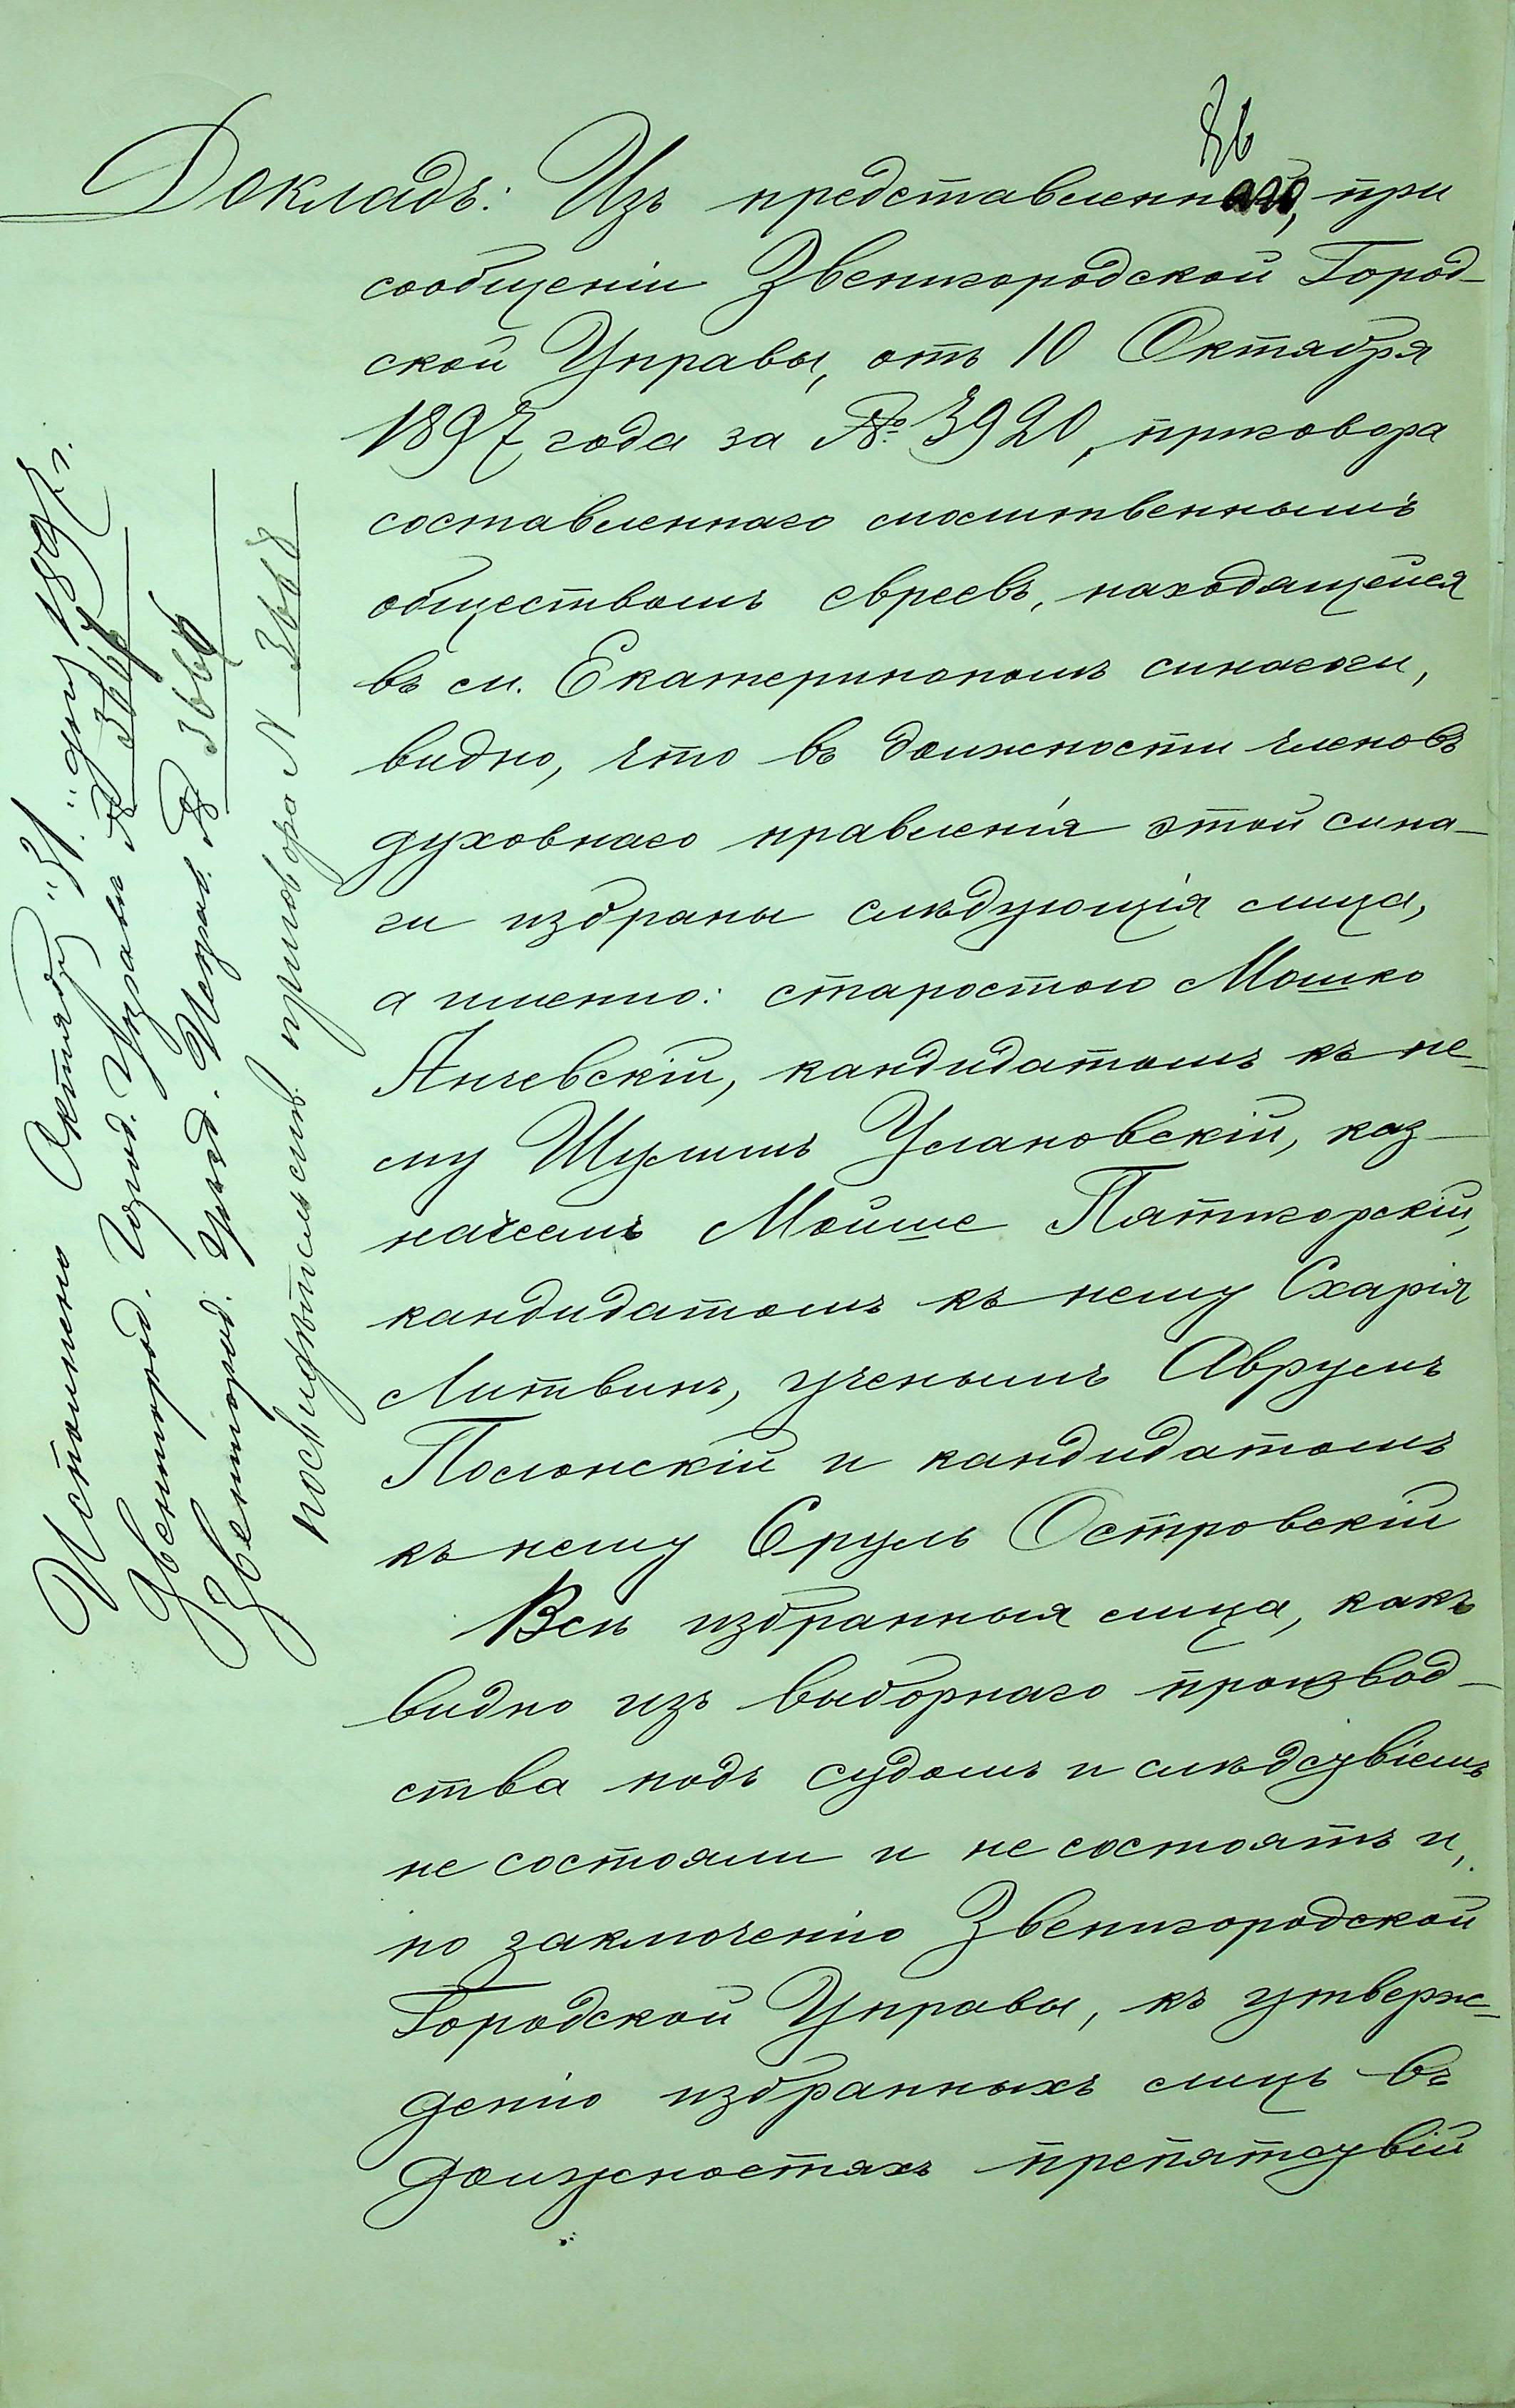 86
Докладъ: Изъ представленнаго, при
сообщеніи Звенигородской Город-
ской Управы, отъ 10 Октября
1897 года за № 3920, приговора
составленнаго молитвеннымъ
обществомъ евреевъ, находящейся
въ м. Екатеринополѣ синагоги,
видно, что въ должности членовъ
духовнаго правленія этой сина-
ги избраны слѣдующія лица,
а именно: старостою Мошко
Янчевскій, кандидатомъ къ не-
му Шулимъ Улановскій, каз-
начеемъ Мойше Пятигорскій,
кандидатомъ къ нему Схарія
Литвинъ, ученымъ Аврумъ
Полонскій и кандидатомъ
къ нему Сруль Островскій
Всѣ избранныя лица, какъ
видно изъ выборнаго производ-
ства подъ судомъ и слѣдствіемъ
не состояли и не состоятъ и,
по заключенію Звенигородской
Городской Управы, къ утверж-
денію избранныхъ лицъ въ
должностяхъ препятствій
Исполнено Октября "31" дня 1897 г.
Звенигород. Город. Управы № 3667
Звенигород. Уѣзд. Исправ. № 3666
посвидѣтельств. приговора N 3668